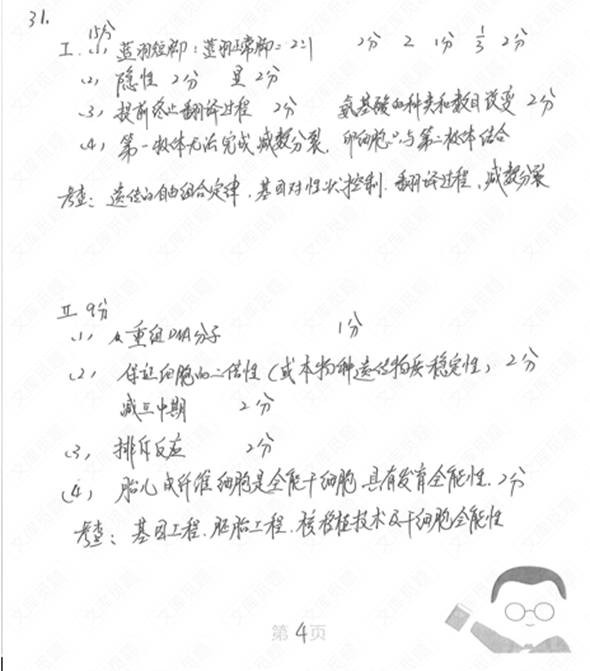 31.
15分
I. (1) 蓝羽短脚:蓝羽正常脚=2:1 2分 2 1分 1/3 2分
(2) 隐性 2分 显 2分
(3) 提前终止翻译过程 2分 氨基酸的种类和数目改变 2分
(4) 第一极体无法完成减数分裂, 卵细胞只与第二极体结合
考查: 遗传的自由组合定律, 基因对性状控制, 翻译过程, 减数分裂
II. 9分
(1) 重组DNA分子 1分
(2) 保证细胞的二倍性(或本物种遗传物质稳定性) 2分
减II中期 2分
(3) 排斥反应 2分
(4) 胎儿成纤维细胞是全能干细胞, 具有发育全能性. 2分
考查: 基因工程, 胚胎工程, 核移植技术及干细胞全能性
第4页